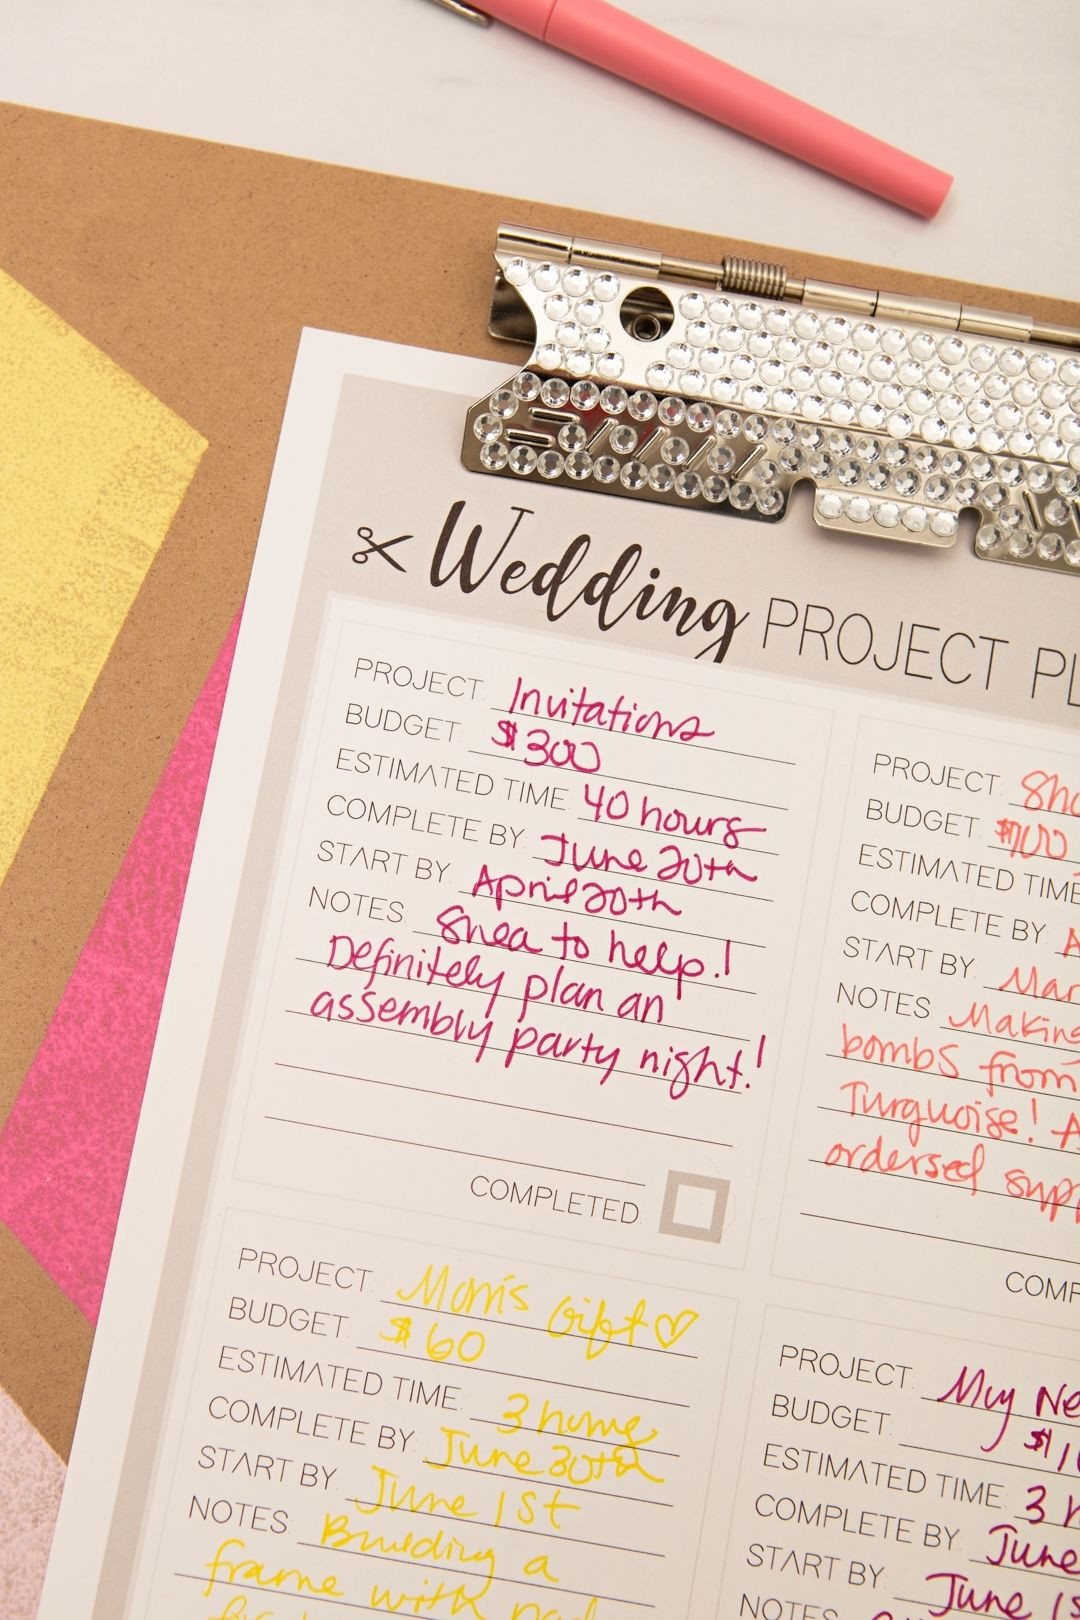 Wedding PROJECT PL
PROJECT: Invitations
BUDGET: $300
ESTIMATED TIME: 40 hours
COMPLETE BY: June 20th
START BY: April 20th
NOTES: Shea to help!
Definitely plan an
assembly party night!
COMPLETED:
PROJECT: Sho
BUDGET: $700
ESTIMATED TIME
COMPLETE BY: A
START BY: Mar
NOTES: Making
bombs from
Turquoise! A
ordersed supp
COMP
PROJECT: Mom's Gift ♡
BUDGET: $60
ESTIMATED TIME: 3 hours
COMPLETE BY: June 30th
START BY: June 1st
NOTES: Building a
frame with
PROJECT: My Ne
BUDGET: $1
ESTIMATED TIME: 3 h
COMPLETE BY: June
START BY: June 1s
NOTES: